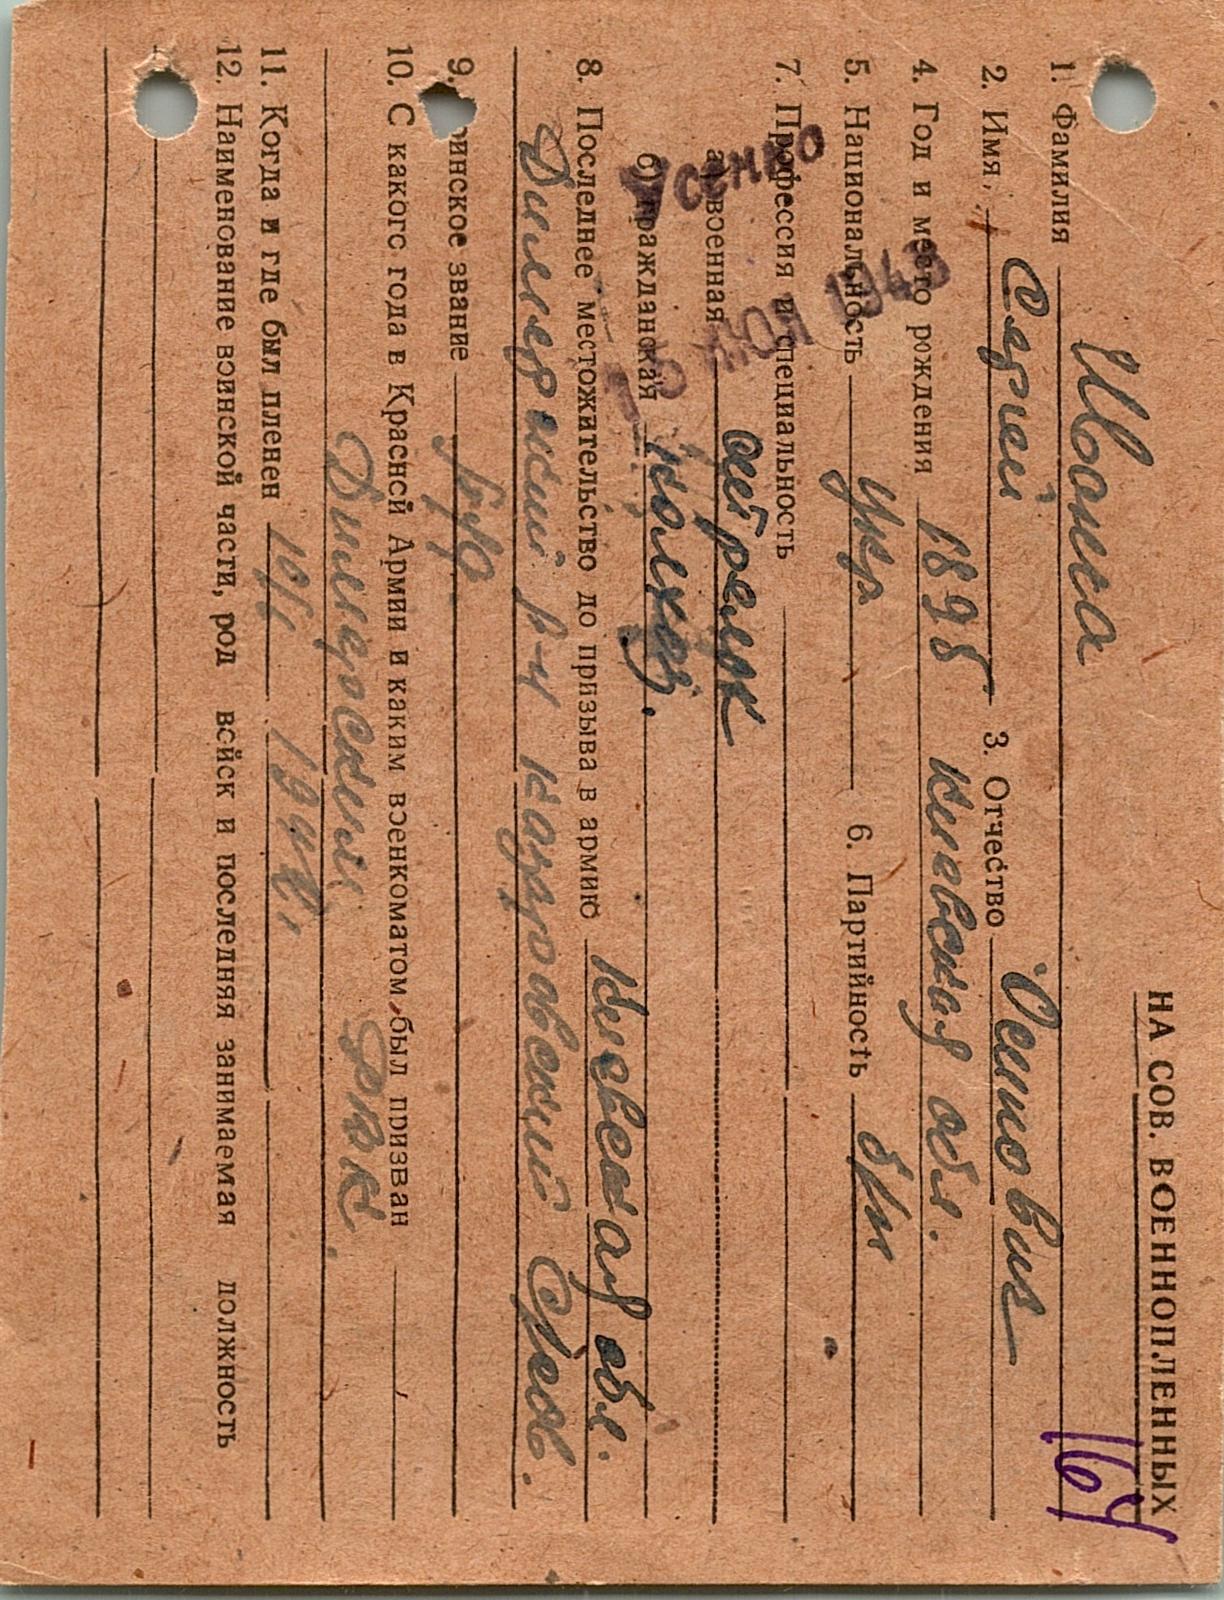 НА СОВ. ВОЕННОПЛЕННЫХ
164
1. Фамилия Швонса
2. Имя, Сергей 3. Отчество Осипович
4. Год и место рождения 1898 Киевская обл.
5. Национальность укр 6. Партийность б/п
7. Профессия и специальность
а) военная стрелок
б) гражданская колхоз.
Усенко
5 ИЮН 1943
8. Последнее местожительство до призыва в армию Киевская обл.
Дымерский р-н
9. воинское звание
10. С какого года в Красной Армии и каким военкоматом был призван
Дымерским РВК
11. Когда и где был пленен
12. Наименование воинской части, род войск и последняя занимаемая должность